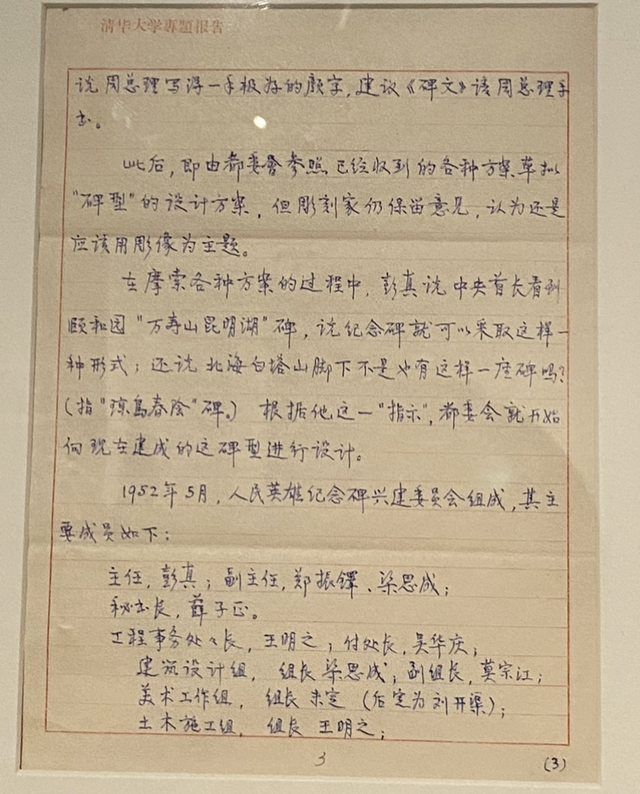 清华大学專題报告
说周总理写得一手极好的颜字，建议《碑文》该周总理手
书。
此后，即由都委会参照已经收到的各种方案草拟
“碑型”的设计方案，但彫刻家仍保留意见，认为还是
应该用彫像为主题。
在摩索各种方案的过程中，彭真说中央首长看到
颐和园“万寿山昆明湖”碑，说纪念碑就可以采取这样一
种形式；还说北海白塔山脚下不是也有这样一座碑吗？
（指“琼岛春阴”碑。）根据他这一“指示”，都委会就开始
向现在建成的这碑型进行设计。
1952年5月，人民英雄纪念碑兴建委员会组成，其主
要成员如下：
主任，彭真；副主任，郑振铎、梁思成；
秘书长，薛子正。
工程事务处々长，王明之；付处长，吴华庆；
建筑设计组，组长梁思成；副组长，莫宗江；
美术工作组，组长未定（后定为刘开渠）；
土木施工组，组长王明之；
3
(3)